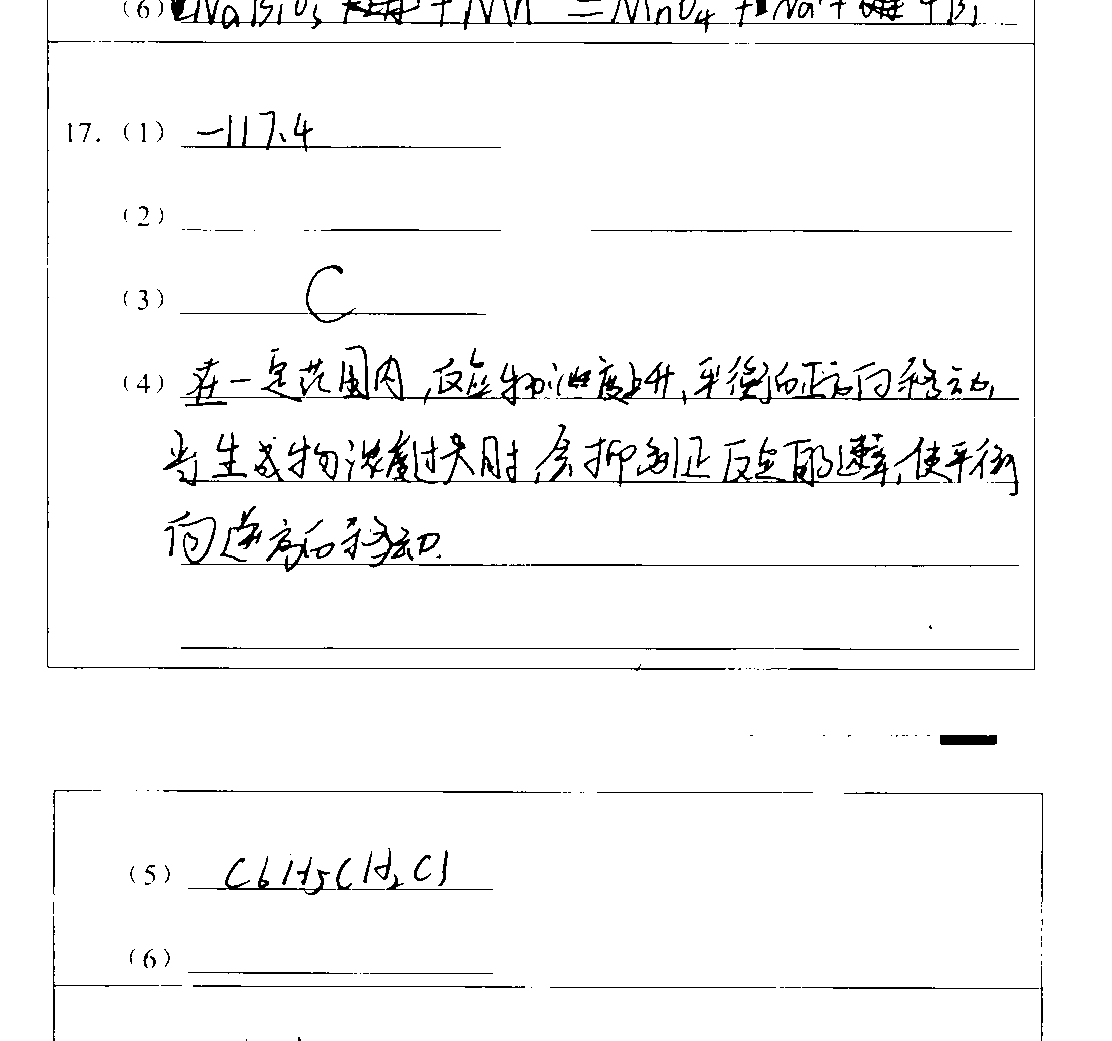 (6) NaBiO₃ + Mn = MnO₄ + Na⁺ + Bi
17. (1) -117.4
(2)
(3) C
(4) 在一定范围内,反应物浓度上升,平衡向正方向移动,
当生成物浓度过大时,会抑制正反应的速率,使平衡
向逆方向移动.
(5) C6H5CH2Cl
(6)